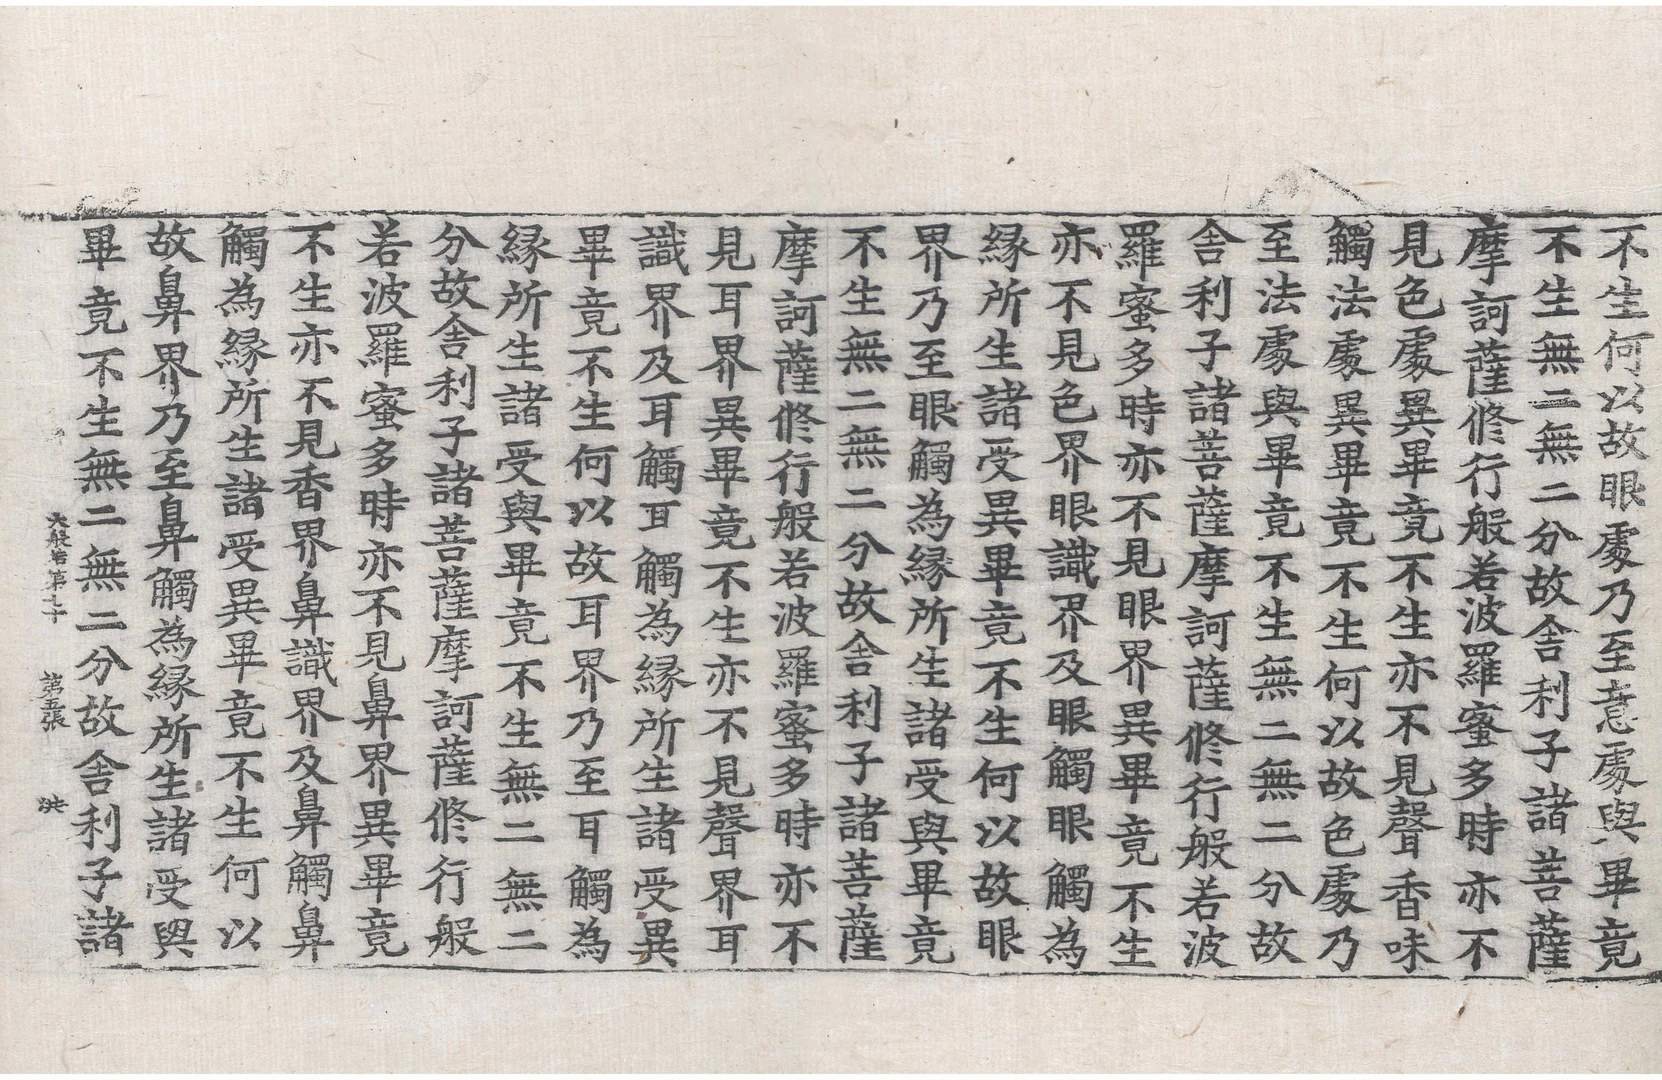 不生何以故眼處乃至意處與畢竟
不生無二無二分故舍利子諸菩薩
摩訶薩修行般若波羅蜜多時亦不
見色處異畢竟不生亦不見聲香味
觸法處異畢竟不生何以故色處乃
至法處與畢竟不生無二無二分故
舍利子諸菩薩摩訶薩修行般若波
羅蜜多時亦不見眼界異畢竟不生
亦不見色界眼識界及眼觸眼觸為
緣所生諸受異畢竟不生何以故眼
界乃至眼觸為緣所生諸受與畢竟
不生無二無二分故舍利子諸菩薩
摩訶薩修行般若波羅蜜多時亦不
見耳界異畢竟不生亦不見聲界耳
識界及耳觸耳觸為緣所生諸受異
畢竟不生何以故耳界乃至耳觸為
緣所生諸受與畢竟不生無二無二
分故舍利子諸菩薩摩訶薩修行般
若波羅蜜多時亦不見鼻界異畢竟
不生亦不見香界鼻識界及鼻觸鼻
觸為緣所生諸受異畢竟不生何以
故鼻界乃至鼻觸為緣所生諸受與
畢竟不生無二無二分故舍利子諸
大般若第七十 第五張 洪